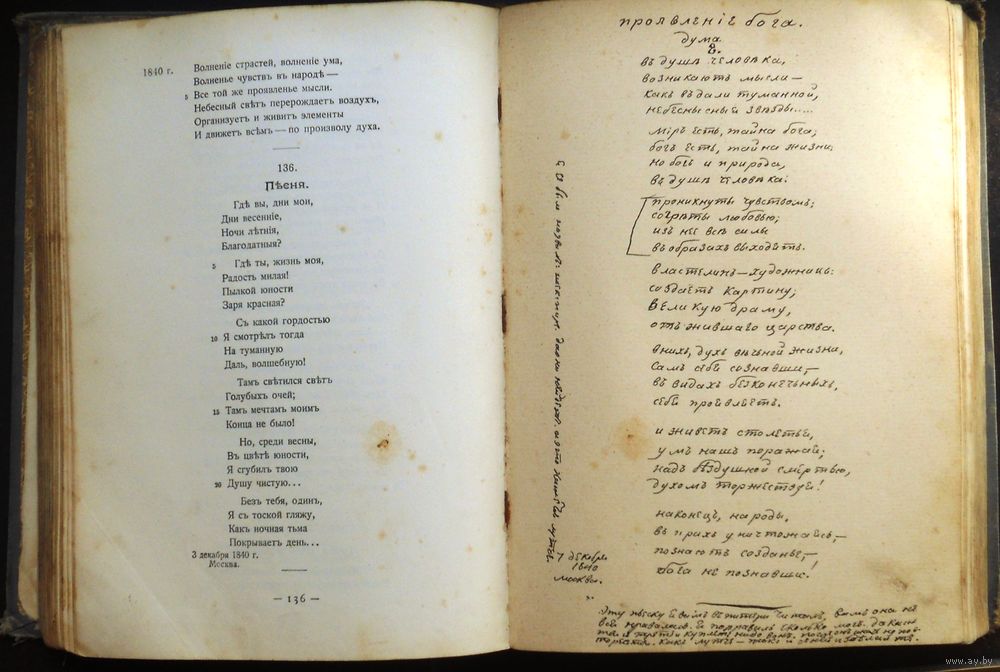 1840 г.
Волненіе страстей, волненіе ума,
Волненье чувствъ въ народѣ —
5 Все той же проявленье мысли.
Небесный свѣтъ перерождаетъ воздухъ,
Организуетъ и живитъ элементы
И движетъ всѣмъ — по произволу духа.
136.
Пѣсня.
Гдѣ вы, дни мои,
Дни весенніе,
Ночи лѣтнія,
Благодатныя?
5 Гдѣ ты, жизнь моя,
Радость милая!
Пылкой юности
Заря красная?
Съ какой гордостью
10 Я смотрѣлъ тогда
На туманную
Даль, волшебную!
Тамъ свѣтился свѣтъ
Голубыхъ очей;
15 Тамъ мечтамъ моимъ
Конца не было!
Но, среди весны,
Въ цвѣтѣ юности,
Я сгубилъ твою
20 Душу чистую...
Безъ тебя, одинъ,
Я съ тоской гляжу,
Какъ ночная тьма
Покрываетъ день...
3 декабря 1840 г.
Москва.
— 136 —
проявленіе бога.
дума
въ душѣ человѣка,
возникаютъ мысли —
какъ въ дали туманной,
небесныя звѣзды.....
міръ есть, тайна бога;
богъ есть, тайна жизни;
но богъ и природа,
въ душѣ человѣка:
проникнуты чувствомъ;
согрѣты любовью;
изъ нее всѣ силы
въ образахъ выходятъ.
властелинъ — художникъ:
создаетъ картину;
великую драму,
отжившаго царства.
въ нихъ, духъ вѣчной жизни,
самъ себѣ сознавши, —
въ видахъ безконечныхъ,
себѣ проявляетъ.
и живетъ столетьи,
умъ нашъ поражай;
надъ бездушной смертью,
духомъ торжествуй!
наконецъ, народы,
въ прахъ уничтожась, —
познаютъ созданье, —
бога не познавши!
7 декабря
1840
москва.